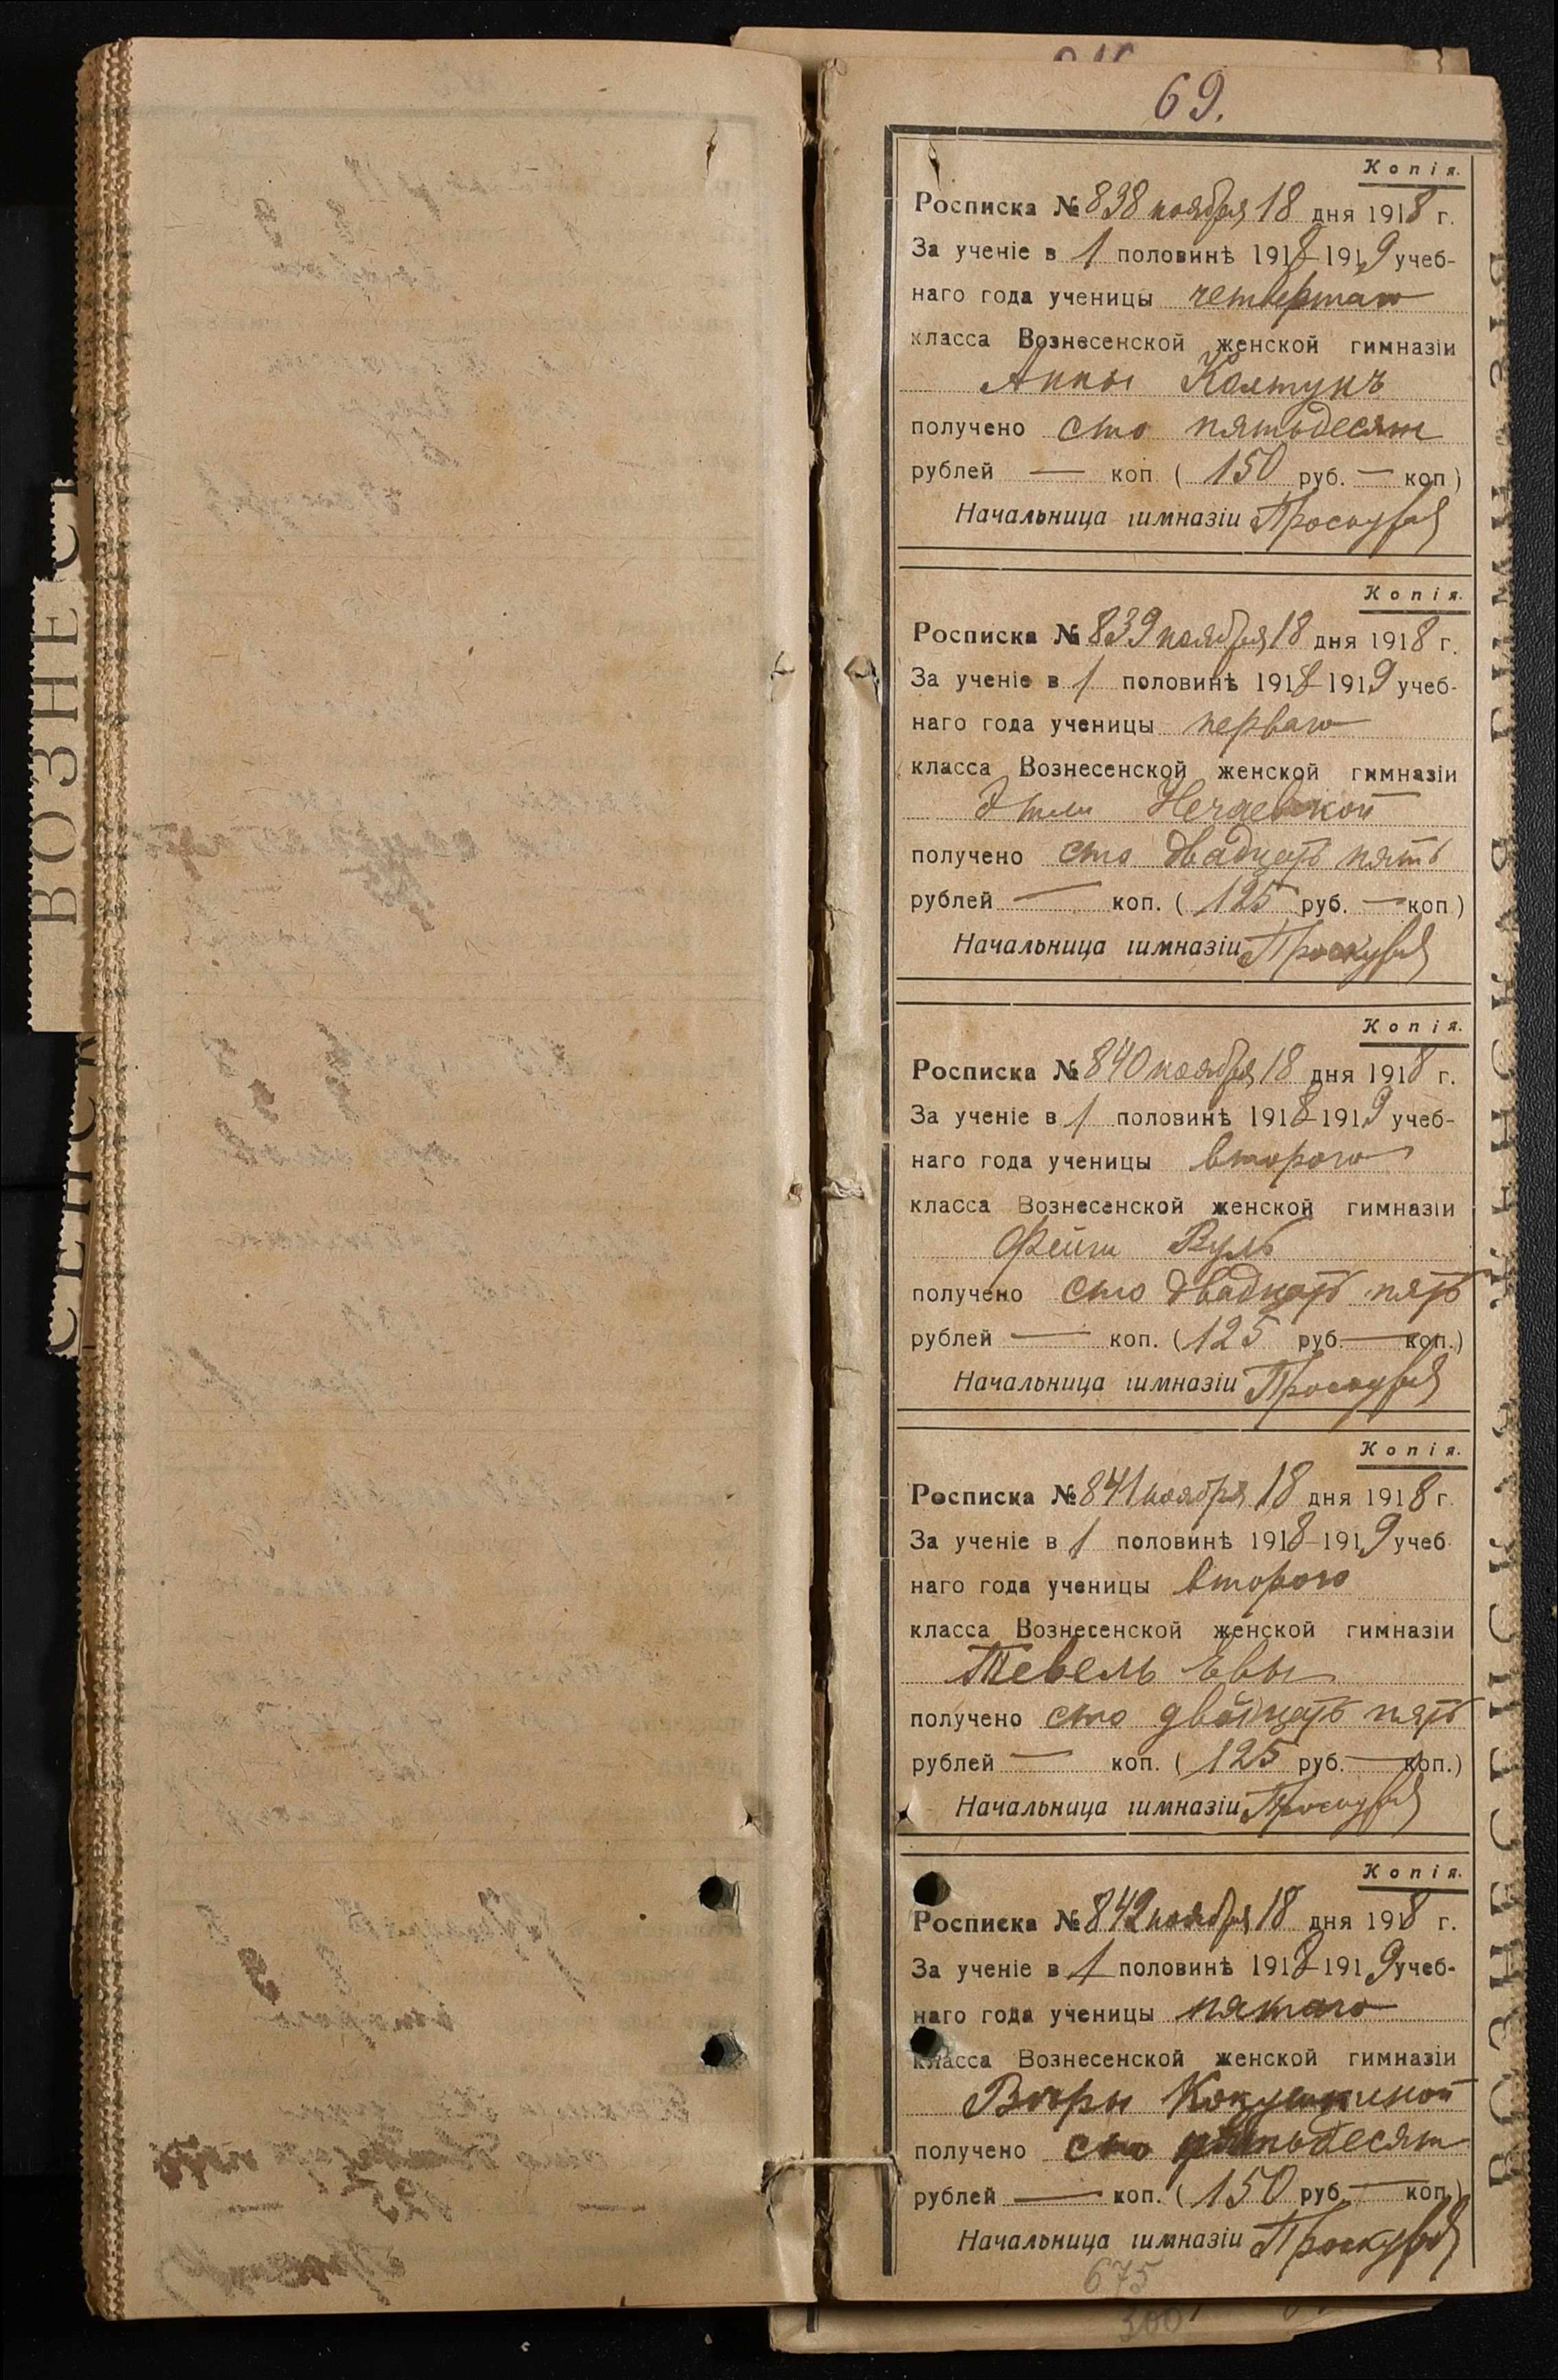 69.
Копія.
Росписка № 838 ноября 18 дня 1918 г.
За ученіе в 1 половинѣ 1918-1919 учеб-
наго года ученицы четвертаго
класса Вознесенской женской гимназіи
Анны Колтунъ
получено сто пятьдесят
рублей — коп. ( 150 руб. — коп )
Начальница гимназіи
Копія.
Росписка № 839 ноября 18 дня 1918 г.
За ученіе в 1 половинѣ 1918-1919 учеб-
наго года ученицы перваго
класса Вознесенской женской гимназіи
Нечаевской
получено сто двадцать пять
рублей — коп. ( 125 руб. — коп )
Начальница гимназіи
Копія.
Росписка № 840 ноября 18 дня 1918 г.
За ученіе в 1 половинѣ 1918-1919 учеб-
наго года ученицы второго
класса Вознесенской женской гимназіи
Фейги Вуль
получено сто двадцать пять
рублей — коп. ( 125 руб — коп.)
Начальница гимназіи
Копія.
Росписка № 841 ноября 18 дня 1918 г.
За ученіе в 1 половинѣ 1918-1919 учеб
наго года ученицы второго
класса Вознесенской женской гимназіи
Тевель Евы
получено сто двадцать пять
рублей — коп. ( 125 руб. — коп.)
Начальница гимназіи
Копія.
Росписка № 842 ноября 18 дня 1918 г.
За ученіе в 1 половинѣ 1918-1919 учеб-
наго года ученицы пятаго
класса Вознесенской женской гимназіи
Вѣры
получено сто пятьдесят
рублей — коп. ( 150 руб — коп.)
Начальница гимназіи
675
300
ВОЗНЕС